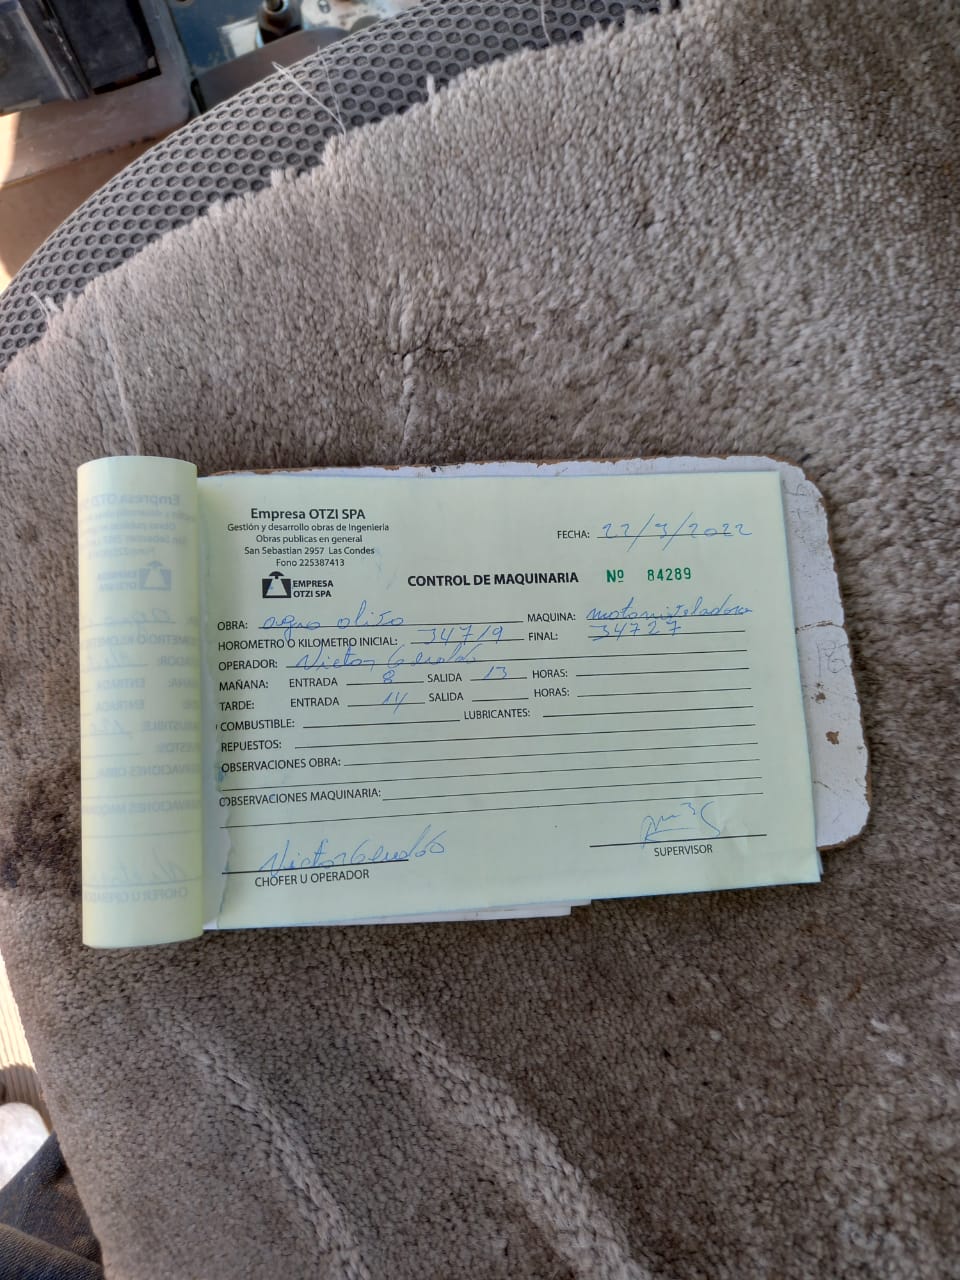 Empresa OTZI SPA
Gestión y desarrollo obras de Ingenieria
Obras publicas en general
San Sebastian 2957 Las Condes
Fono 225387413
FECHA: 22/3/2022
EMPRESA
OTZI SPA
CONTROL DE MAQUINARIA Nº 84289
OBRA: agua MAQUINA: motoniveladora
HOROMETRO O KILOMETRO INICIAL: 34719 FINAL: 34727
OPERADOR: Victor
MAÑANA: ENTRADA 8 SALIDA 13 HORAS:
TARDE: ENTRADA 14 SALIDA HORAS:
COMBUSTIBLE: LUBRICANTES:
REPUESTOS:
OBSERVACIONES OBRA:
OBSERVACIONES MAQUINARIA:
Victor
CHOFER U OPERADOR
SUPERVISOR